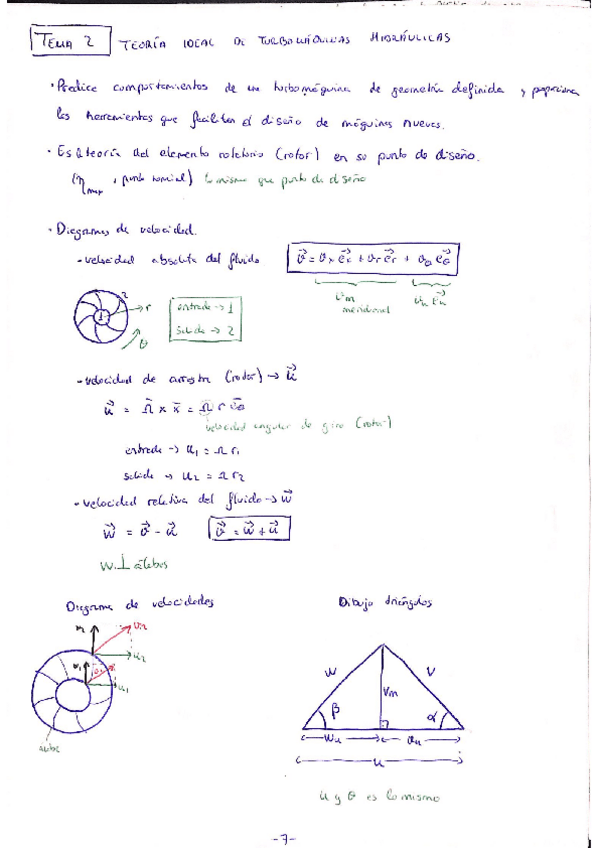 TEMA 2 TEORÍA IDEAL DE TURBOMÁQUINAS HIDRÁULICAS
· Predice comportamientos de una turbomáquina de geometría definida y proporciona
las herramientas que faciliten el diseño de máquinas nuevas.
· Es la teoría del elemento rotatorio (rotor) en su punto de diseño.
(η_max, punto nominal) lo mismo que punto de diseño
· Diagramas de velocidad.
- velocidad absoluta del fluido v⃗ = v_x e⃗_x + v_r e⃗_r + v_θ e⃗_θ
v⃗_m v_u e⃗_u
meridional
2
1 r
θ
entrada → 1
salida → 2
- velocidad de arrastre (rotor) → u⃗
u⃗ = Ω⃗ x x⃗ = Ω r e⃗_θ
velocidad angular de giro (rotor)
entrada → u₁ = Ω r₁
salida → u₂ = Ω r₂
- velocidad relativa del fluido → w⃗
w⃗ = v⃗ - u⃗ v⃗ = w⃗ + u⃗
W ⊥ álabes
Diagrama de velocidades Dibujo triángulos
v₂
u₂
u₁
w V
V_m
β α
w_u v_u
u
u y θ es lo mismo
-7-